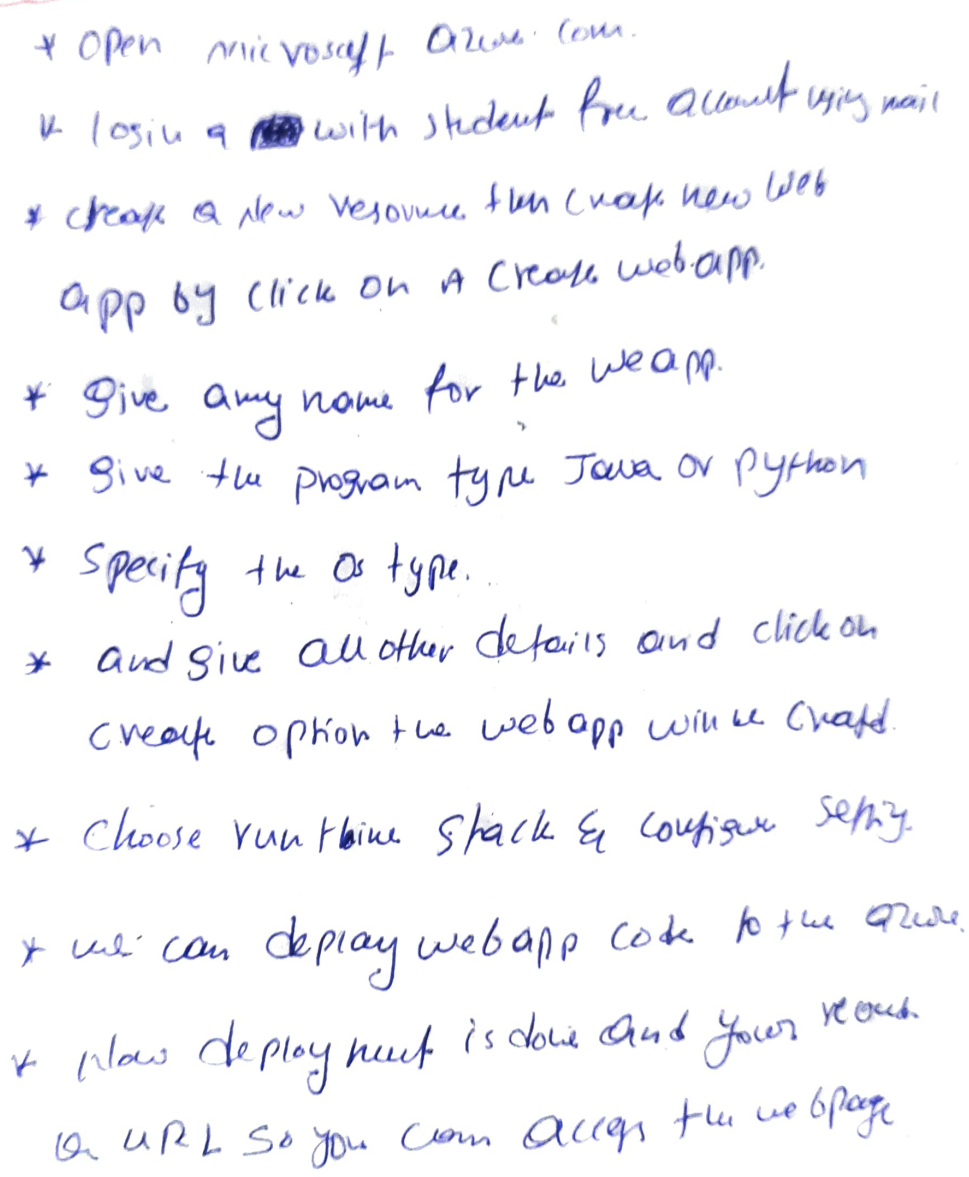 * Open microsoft azure.com.
* login a with student free account using mail
* create a New resource then create new Web
app by click on A Create web.app.
* give any name for the weapp.
* give the program type Java or python
* Specify the Os type.
* and give all other details and click on
create option the web app will be created.
* Choose runtime stack & configure setting.
* we can deploy webapp code to the azure.
* Now deployment is done and your
a URL so you can access the webpage